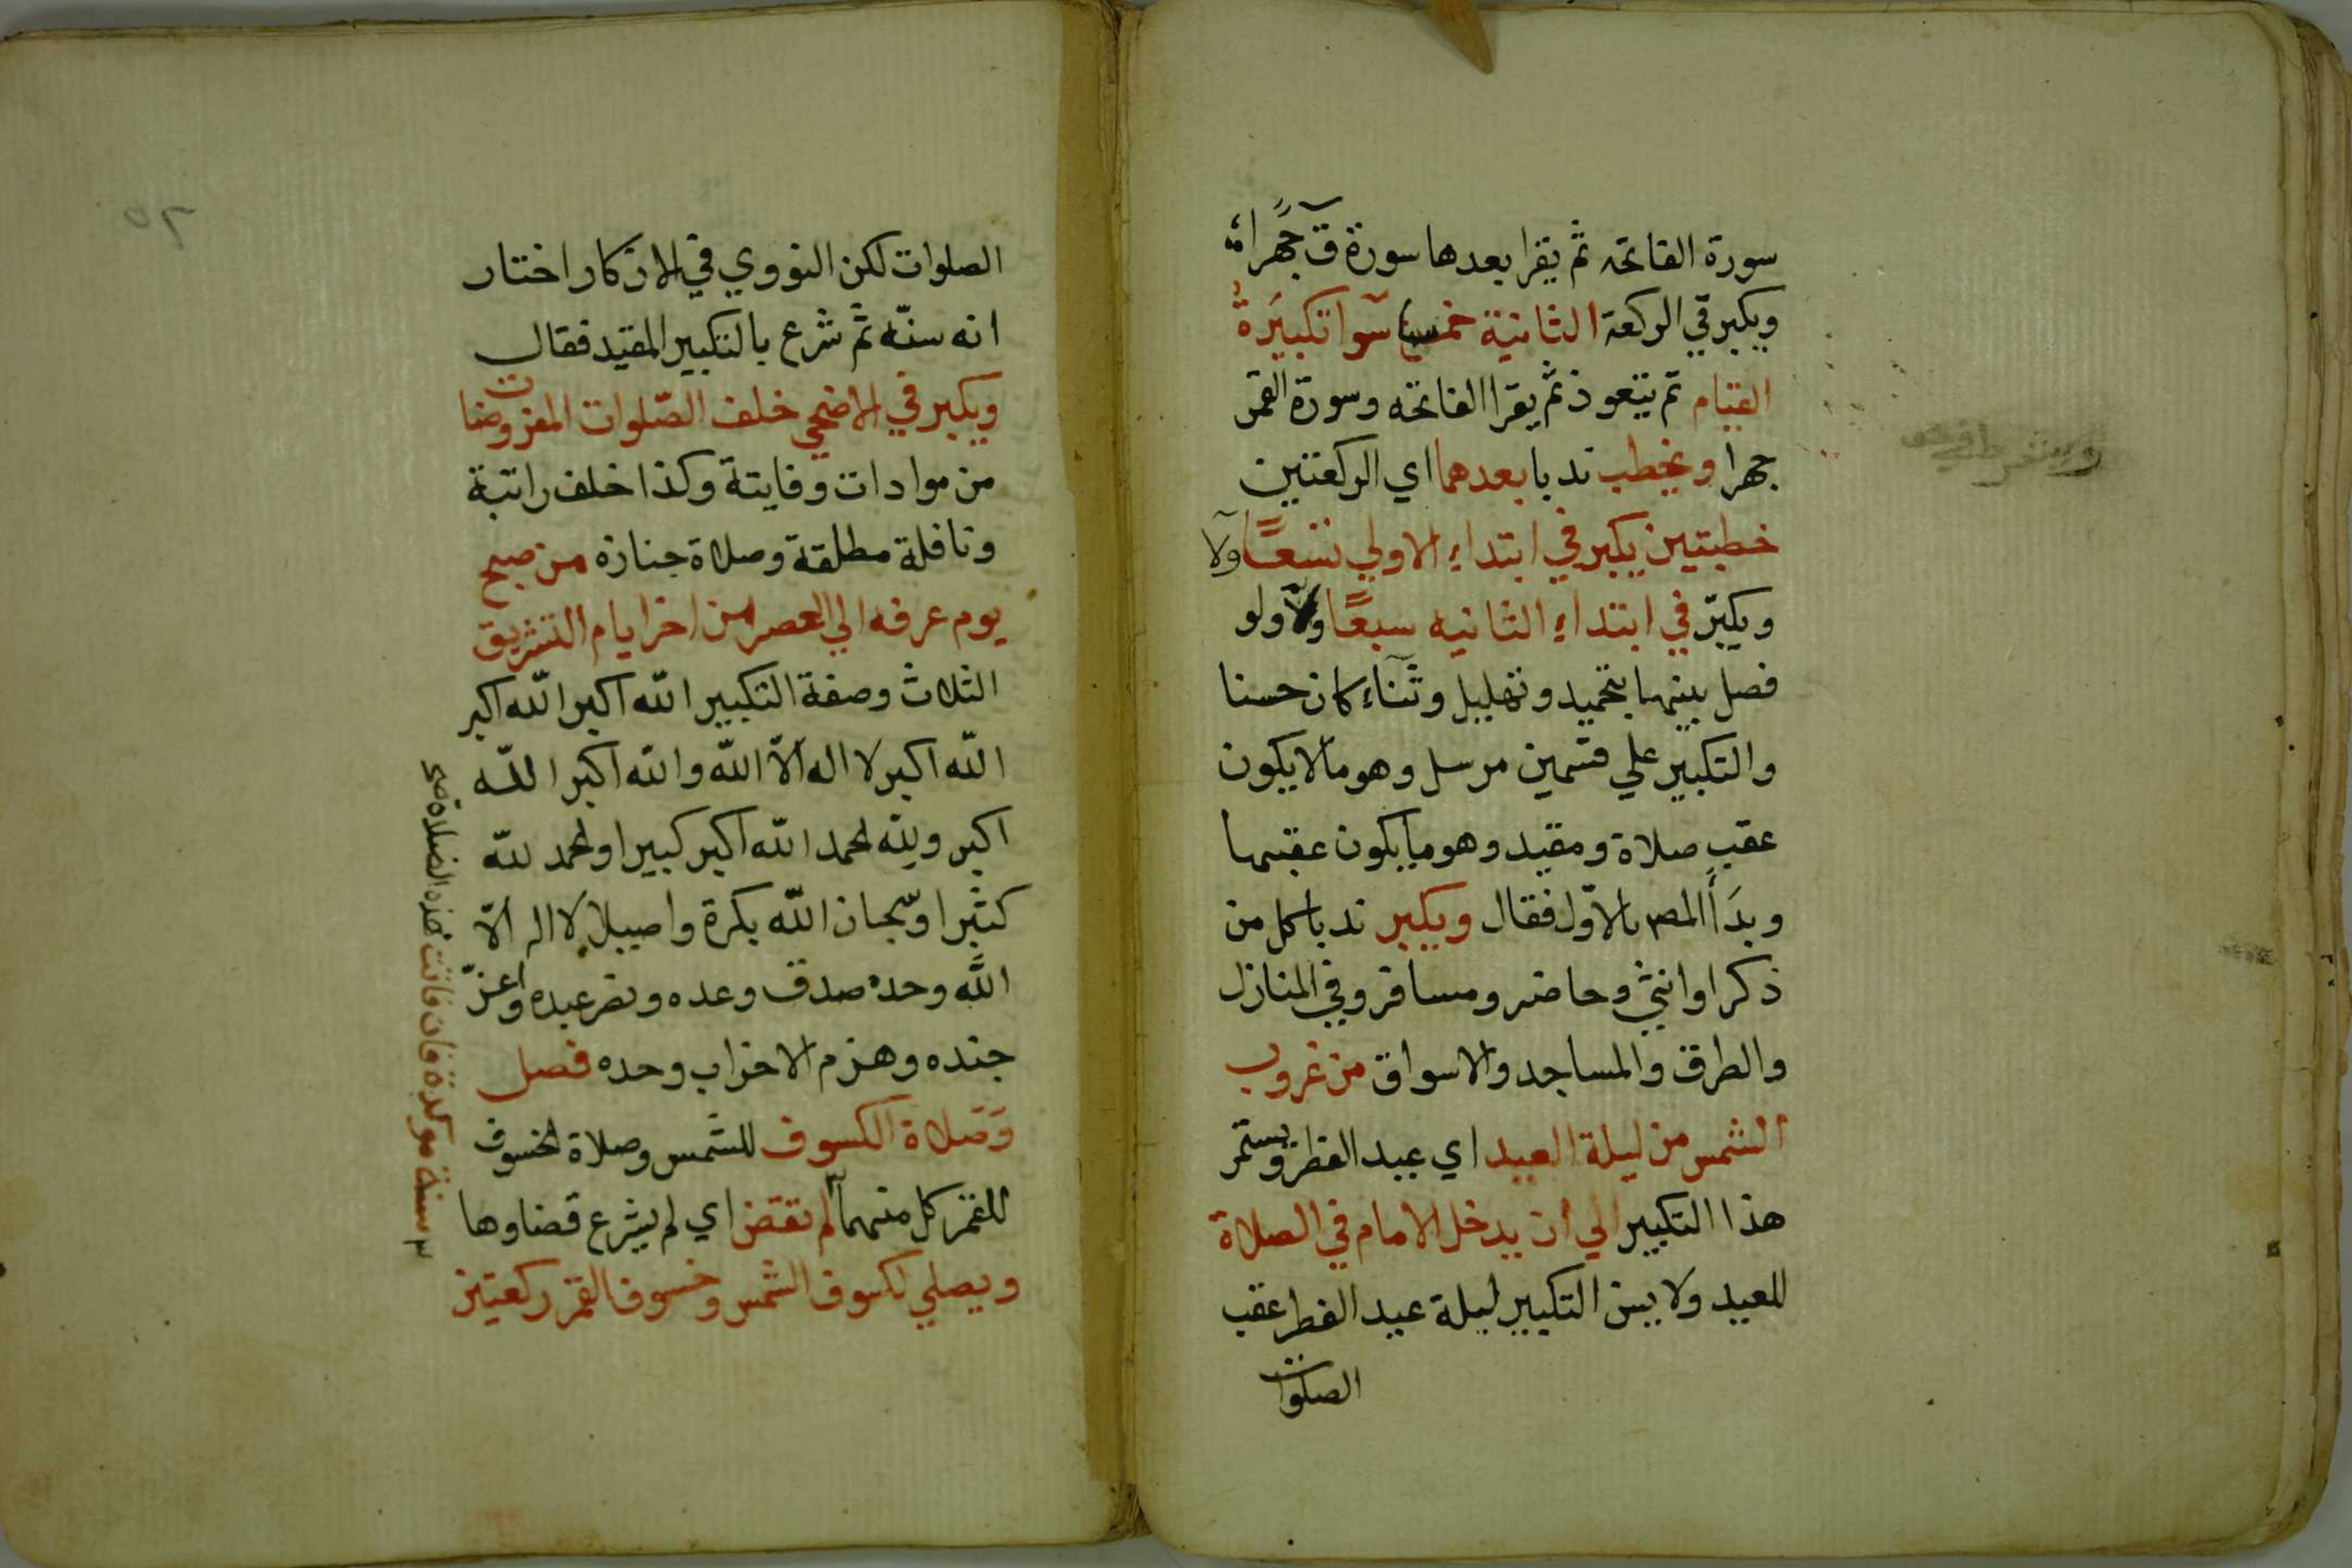 سورة الفاتحه ثم يقرا بعدها سورة ق جهرا
ويكبر في الركعة الثانية خمسا سوا تكبيرة
القيام ثم يتعوذ ثم يقرا الفاتحه وسورة القمر
جهرا ويخطب ندبا بعدهما اي الركعتين
خطبتين يكبر في ابتداء الاولي تسعا ولا
ويكبر في ابتداء الثانيه سبعا ولا ولو
فصل بينهما بتحميد وتهليل وثناء كان حسنا
والتكبير علي قسمين مرسل وهو مالا يكون
عقب صلاة ومقيد وهو ما يكون عقبها
وبدأ المصـ بالاول فقال ويكبر ندبا كل من
ذكر اوانثي وحاضر ومسافر وفي المنازل
والطرق والمساجد والاسواق من غروب
الشمس من ليلة العيد اي عيد الفطر ويستمر
هذا التكبير الي ان يدخل الامام في الصلاة
للعيد ولا يسن التكبير ليلة عيد الفطر عقب
الصلوات
الصلوات لكن النووي في الاذكار اختار
انه سنه ثم شرع بالتكبير المقيد فقال
ويكبر في الاضحي خلف الصلوات المفروضات
من موادات وفايتة وكذا خلف راتبة
ونافلة مطلقة وصلاة جنازه من صبح
يوم عرفه الي العصر من اخر ايام التشريق
الثلاث وصفة التكبير الله اكبر الله اكبر
الله اكبر لا اله الا الله والله اكبر الله
اكبر ولله الحمد الله اكبر كبيرا والحمد لله
كثيرا وسبحان الله بكرة واصيلا لا اله الا
الله وحده صدق وعده ونصر عبده واعز
جنده وهزم الاحزاب وحده فصل
وصلاة الكسوف للشمس وصلاة الخسوف
للقمر كل منهما
سنة موكدة فان فاتت هذه الصلاة
لم تقض اي لم يشرع قضاوها
ويصلي لكسوف الشمس وخسوف القمر ركعتين